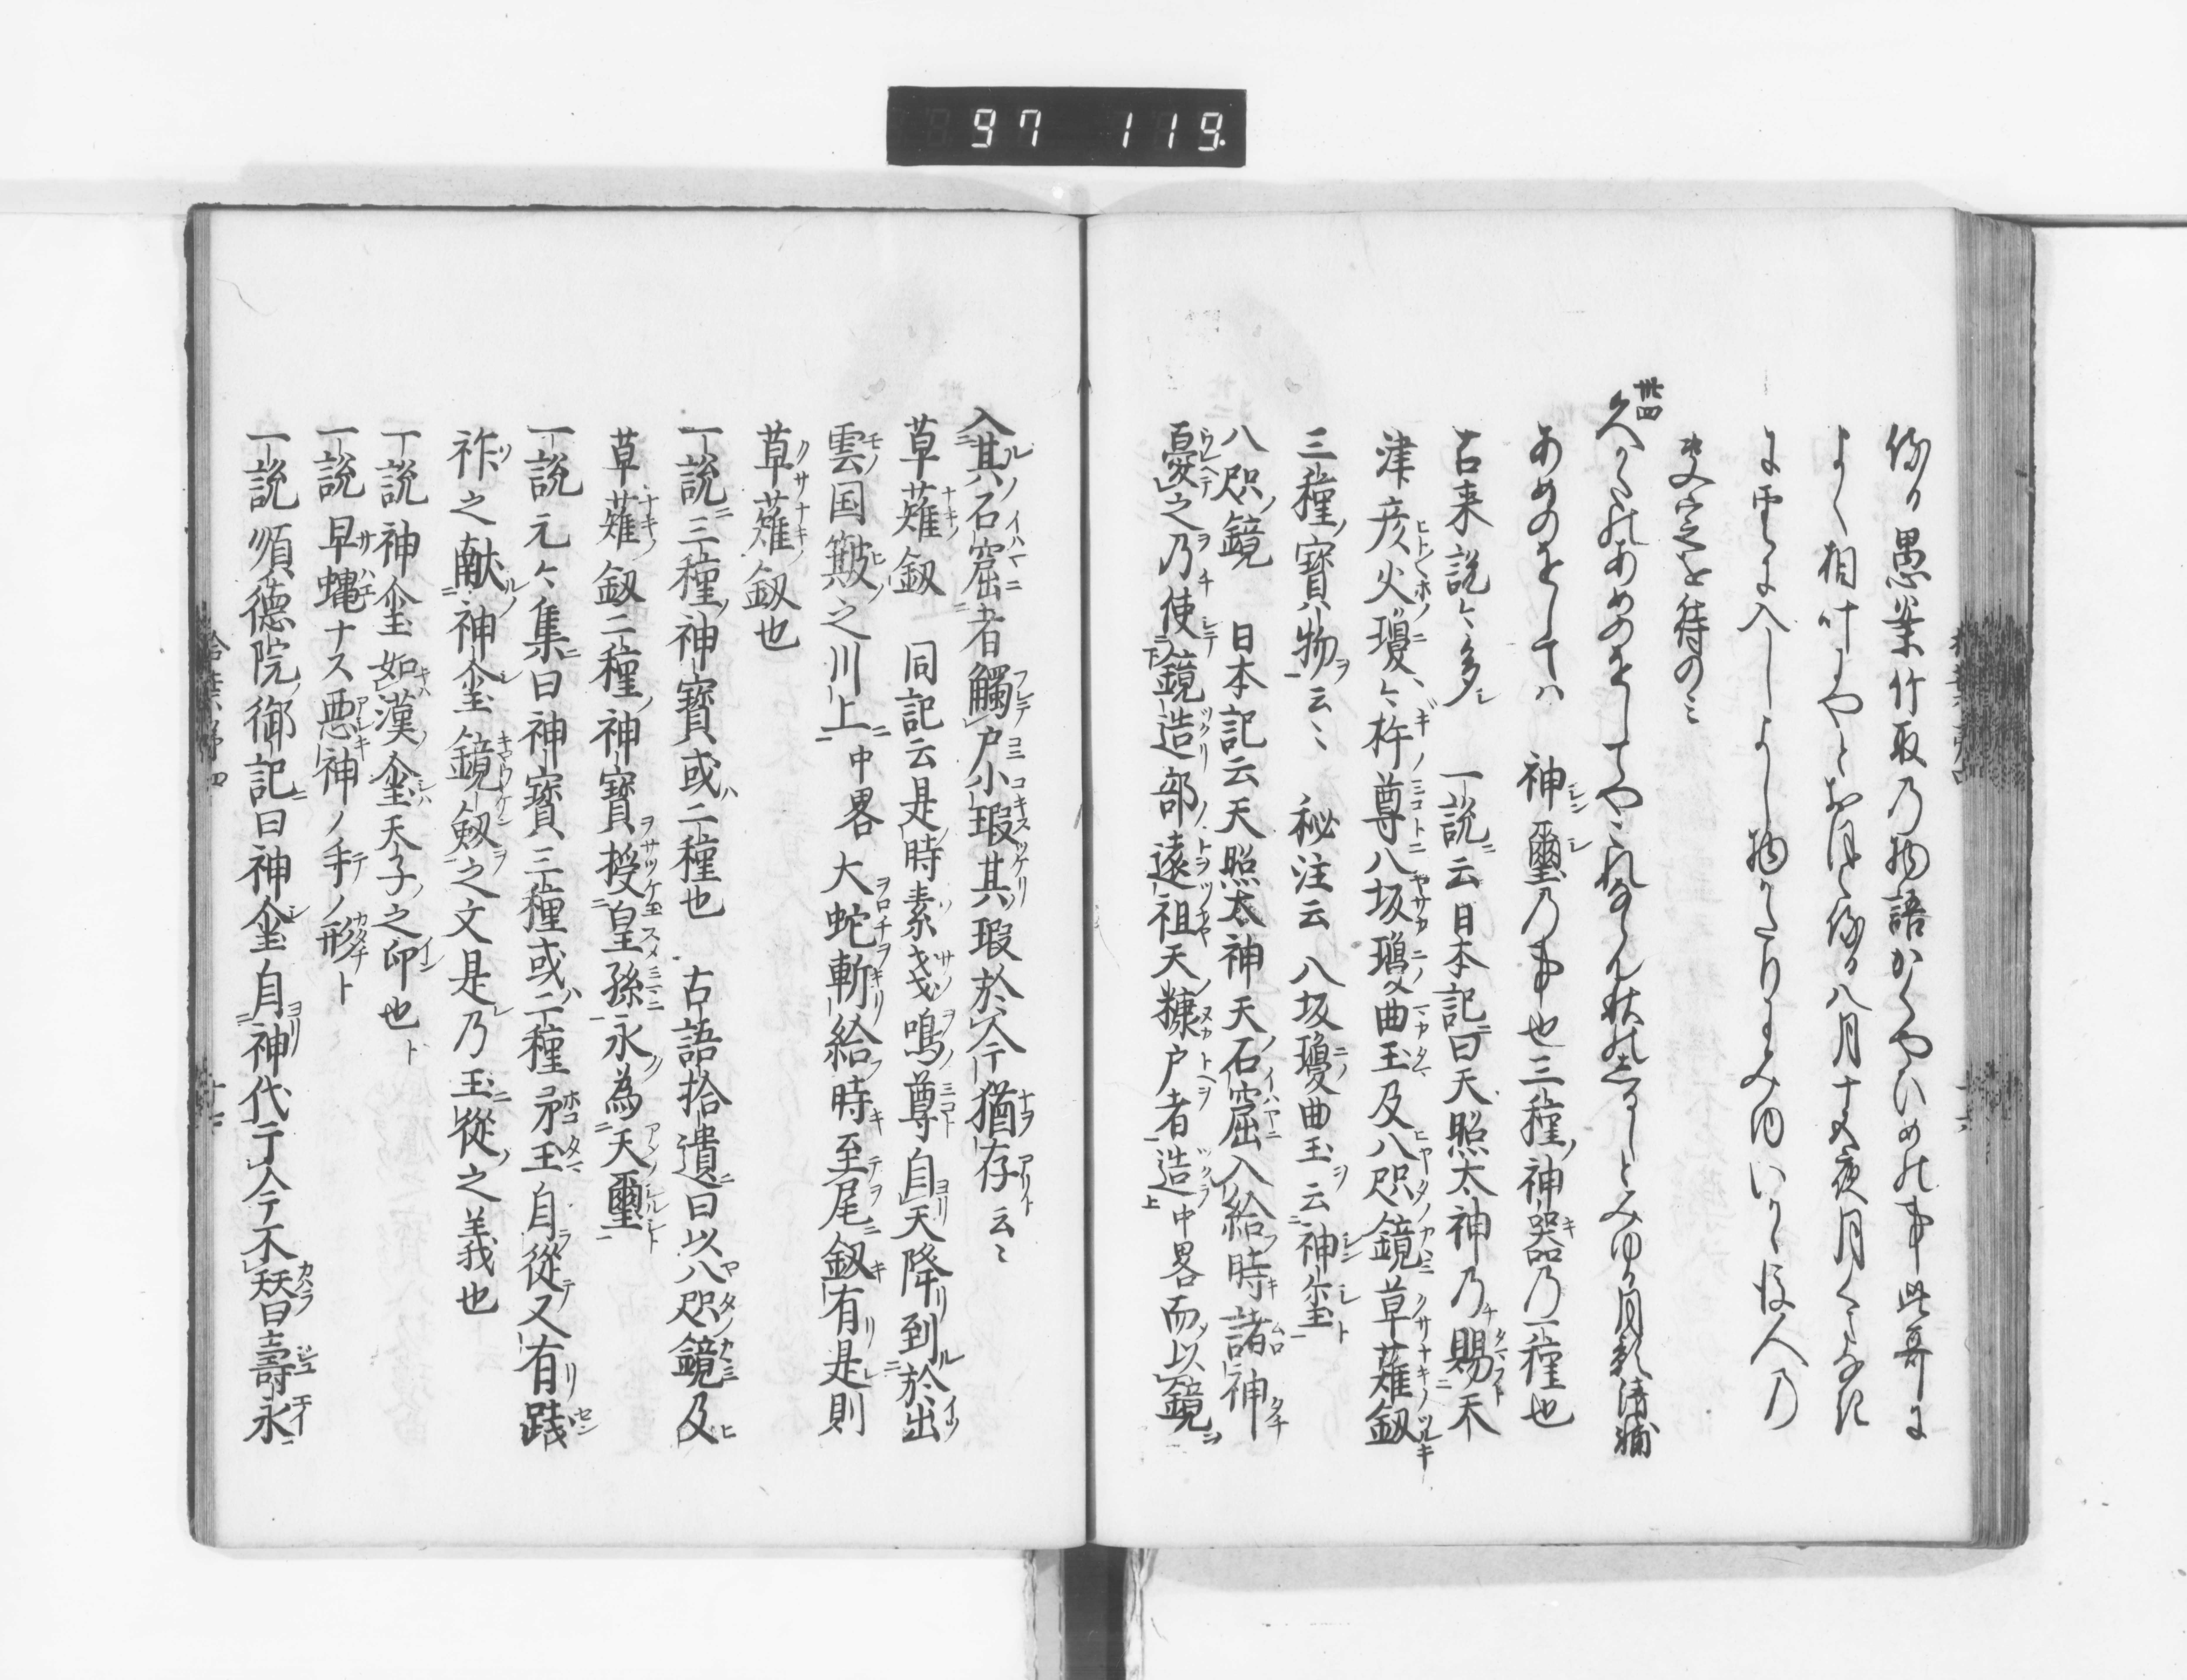 97 119
愚案竹取乃物語かくやひめの事此哥に
よく相叶にやとおほゆ 八月十五夜月くまなき
に雲に入しよし物かたりにみゆいかゝ後人乃
定を待のミ
卅四
久かたのあめのをしてやこれならん秋のしるしとみゆる月影 清輔
あめのをしては 神璽乃事也三種ノ神器乃一種也
古来説々多シ 一説ニ云日本記ニ曰天照太神乃賜天
津彦火瓊々杵尊八坂瓊曲玉及八咫鏡草薙釼
三種ノ寶物ヲ云〻 秘注云 八坂瓊曲玉ヲ云神璽ト
八咫ノ鏡 日本記云天照太神天ノ石窟入給時諸神
憂之乃使鏡造部遠祖天糠戸者造 中畧 而以鏡
入其石窟者觸戸小瑕其瑕於今猶存云〻
草薙釼 同記云是時素戔嗚尊自天降到於出
雲国簸之川上 中畧 大蛇斬給時至尾釼有是則
草薙ノ釼也
一説ニ三種ノ神寶或ハ二種也 古語拾遺ニ曰以八咫鏡及
草薙釼二種ノ神寶授皇孫永為天璽
一説元々集ニ曰神寶三種或ハ二種矛玉自從又有踐
祚之献神璽鏡釼之文是乃玉從之義也
一説神璽如漢璽天子之印也ト
一説早蠅ナス悪神ノ手ノ形ト
一説順徳院御記ニ曰神璽自神代于今不替壽永